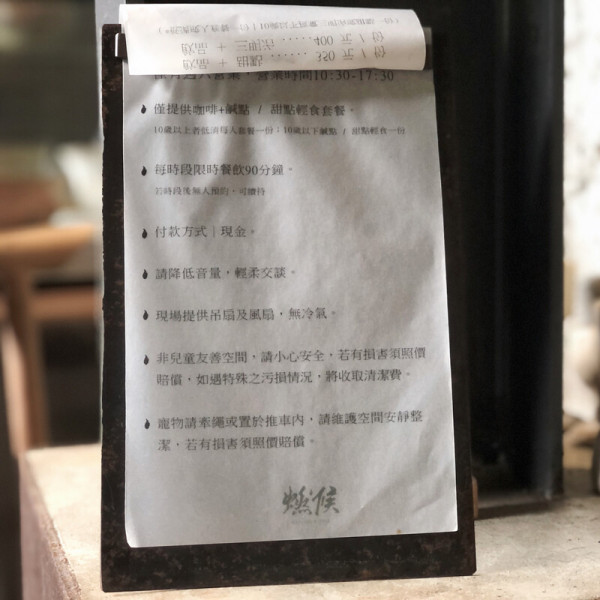 飲品 + 甜點 ...... 350 元 / 份
飲品 + 三明治 ...... 400 元 / 份
營業，營業時間10:30-17:30
僅提供咖啡+鹹點 / 甜點輕食套餐。
10歲以上者低消每人套餐一份；10歲以下鹹點 / 甜點輕食一份
每時段限時餐飲90分鐘。
若時段後無人預約，可續待
付款方式｜現金。
請降低音量，輕柔交談。
現場提供吊扇及風扇，無冷氣。
非兒童友善空間，請小心安全，若有損害須照價
賠償，如遇特殊之污損情況，將收取清潔費。
寵物請牽繩或置於推車內，請維護空間安靜整
潔，若有損害須照價賠償。
燃候